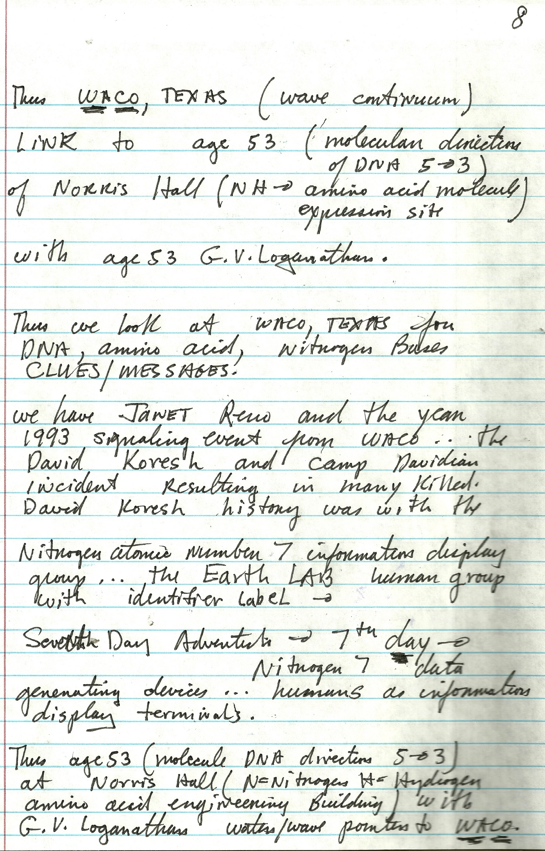 8
Thus WACO, TEXAS (wave continuum)
LINK to age 53 (molecular direction
of DNA 5→3)
of NORRIS Hall (NH→ amino acid molecule)
expression site
with age 53 G.V. Loganathan.
Thus we look at WACO, TEXAS for
DNA, amino acid, Nitrogen Bases
CLUES/MESSAGES.
we have JANET Reno and the year
1993 signaling event from WACO... the
David Koresh and Camp Davidian
incident Resulting in many killed.
David Koresh history was with the
Nitrogen atomic number 7 information display
group ... the Earth LAB human group
with identifier label →
Seventh Day Adventists → 7th day →
Nitrogen 7 data
generating devices ... humans as information
display terminals.
Thus age 53 (molecule DNA direction 5→3)
at Norris Hall (N=Nitrogen H= Hydrogen
amino acid engineering Building) with
G.V. Loganathan waters/wave pointers to WACO.